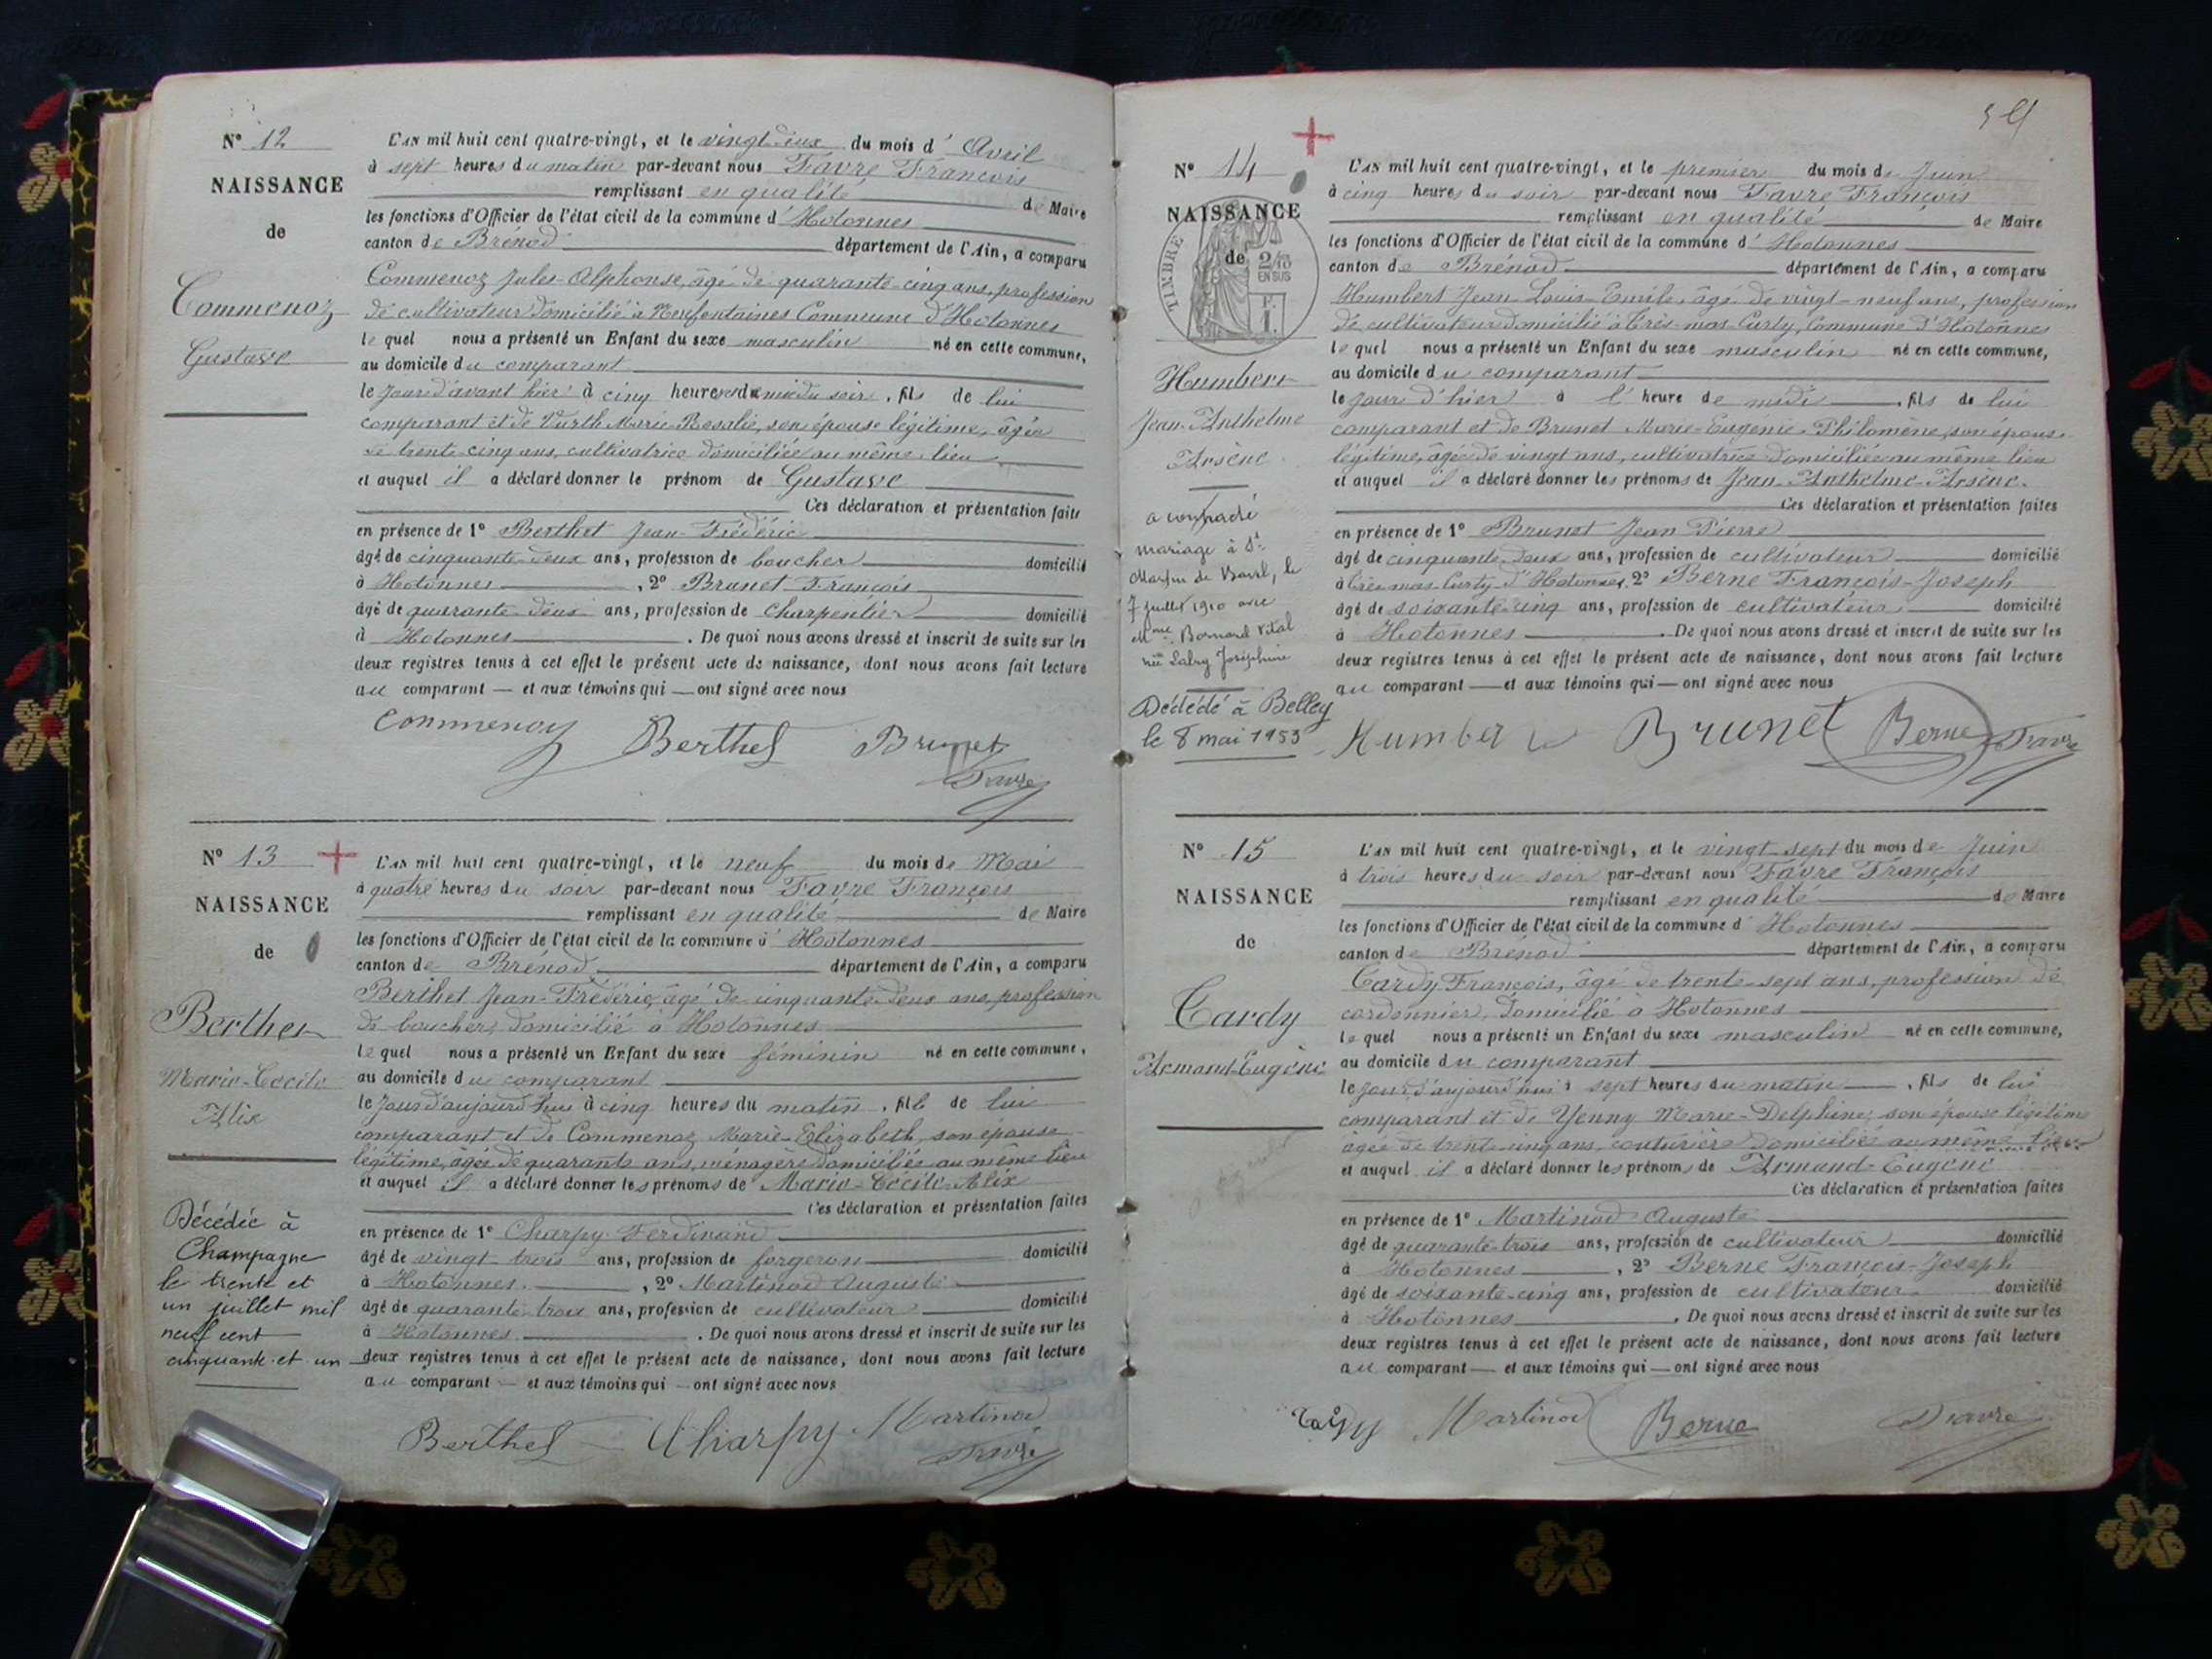 N° 12
NAISSANCE
de
Commenoz
Gustave
L'AN mil huit cent quatre-vingt, et le vingt deux du mois d' Avril
à sept heures du matin par-devant nous Favre François
remplissant en qualité de Maire
les fonctions d'Officier de l'état civil de la commune d' Hotonnes
canton de Brénod département de l'Ain, a comparu
Commenoz Jules-Alphonse, âgé de quarante-cinq ans, profession
de cultivateur domicilié à Commune d'Hotonnes
lequel nous a présenté un Enfant du sexe masculin né en cette commune,
au domicile du comparant
le jour d'avant hier à cinq heures du soir, fils de lui
comparant et de Marie Rosalie, son épouse légitime, âgée
de trente cinq ans, cultivatrice domiciliée au même lieu
et auquel il a déclaré donner le prénom de Gustave
Ces déclaration et présentation faite
en présence de 1° Berthet Jean-Frédéric
âgé de cinquante-deux ans, profession de boucher domicilié
à Hotonnes, 2° Brunet François
âgé de quarante-deux ans, profession de charpentier domicilié
à Hotonnes. De quoi nous avons dressé et inscrit de suite sur les
deux registres tenus à cet effet le présent acte de naissance, dont nous avons fait lecture
au comparant — et aux témoins qui — ont signé avec nous
Commenoz Berthet Brunet
Favre
N° 13
NAISSANCE
de
Berthet
Marie-Cécile
Alix
Décédée à
Champagne
le trente et
un juillet mil
neuf cent
cinquante et un
L'AN mil huit cent quatre-vingt, et le neuf du mois de Mai
à quatre heures du soir par-devant nous Favre François
remplissant en qualité de Maire
les fonctions d'Officier de l'état civil de la commune d' Hotonnes
canton de Brénod département de l'Ain, a comparu
Berthet Jean-Frédéric, âgé de cinquante-deux ans, profession
de boucher, domicilié à Hotonnes
lequel nous a présenté un Enfant du sexe féminin né en cette commune,
au domicile du comparant
le jour d'aujourd'hui à cinq heures du matin, fille de lui
comparant et de Commenoz Marie-Elizabeth, son épouse
légitime, âgée de quarante ans, ménagère domiciliée au même lieu
et auquel il a déclaré donner les prénoms de Marie-Cécile-Alix
Ces déclaration et présentation faites
en présence de 1° Charpy Ferdinand
âgé de vingt-trois ans, profession de forgeron domicilié
à Hotonnes, 2° Martinod Auguste
âgé de quarante-trois ans, profession de cultivateur domicilié
à Hotonnes. De quoi nous avons dressé et inscrit de suite sur les
deux registres tenus à cet effet le présent acte de naissance, dont nous avons fait lecture
au comparant — et aux témoins qui — ont signé avec nous
Berthet Charpy Martinod
Favre
N° 14
NAISSANCE
de
TIMBRE
2/10
EN SUS
F.
1.
Humbert
Jean-Anthelme
Arsène
a contracté
mariage à St
Martin de Bavel, le
7 juillet 1910 avec
Mme Bornard Vital
née Labry Joséphine
Décédé à Belley
le 8 mai 1953
L'AN mil huit cent quatre-vingt, et le premier du mois de Juin
à cinq heures du soir par-devant nous Favre François
remplissant en qualité de Maire
les fonctions d'Officier de l'état civil de la commune d' Hotonnes
canton de Brénod département de l'Ain, a comparu
Humbert Jean-Louis-Emile, âgé de vingt-neuf ans, profession
de cultivateur domicilié à Curty, Commune d'Hotonnes
lequel nous a présenté un Enfant du sexe masculin né en cette commune,
au domicile du comparant
le jour d'hier à l' heure de midi, fils de lui
comparant et de Brunet Marie-Eugénie-Philomène, son épouse
légitime, âgée de vingt ans, cultivatrice domiciliée au même lieu
et auquel il a déclaré donner les prénoms de Jean-Anthelme-Arsène.
Ces déclaration et présentation faites
en présence de 1° Brunet Jean Pierre
âgé de cinquante-deux ans, profession de cultivateur domicilié
à Curty d'Hotonnes, 2° Berne François-Joseph
âgé de soixante-cinq ans, profession de cultivateur domicilié
à Hotonnes. De quoi nous avons dressé et inscrit de suite sur les
deux registres tenus à cet effet le présent acte de naissance, dont nous avons fait lecture
au comparant — et aux témoins qui — ont signé avec nous
Humbert Brunet Berne Favre
N° 15
NAISSANCE
de
Cardy
Armand-Eugène
L'AN mil huit cent quatre-vingt, et le vingt-sept du mois de Juin
à trois heures du soir par-devant nous Favre François
remplissant en qualité de Maire
les fonctions d'Officier de l'état civil de la commune d' Hotonnes
canton de Brénod département de l'Ain, a comparu
Cardy François, âgé de trente-sept ans, profession de
cordonnier, domicilié à Hotonnes
lequel nous a présenté un Enfant du sexe masculin né en cette commune,
au domicile du comparant
le jour d'aujourd'hui à sept heures du matin, fils de lui
comparant et de Yenny Marie-Delphine, son épouse légitime
âgée de trente-cinq ans, couturière domiciliée au même lieu
et auquel il a déclaré donner les prénoms de Armand-Eugène
Ces déclaration et présentation faites
en présence de 1° Martinod Auguste
âgé de quarante-trois ans, profession de cultivateur domicilié
à Hotonnes, 2° Berne François-Joseph
âgé de soixante-cinq ans, profession de cultivateur domicilié
à Hotonnes. De quoi nous avons dressé et inscrit de suite sur les
deux registres tenus à cet effet le présent acte de naissance, dont nous avons fait lecture
au comparant — et aux témoins qui — ont signé avec nous
Cardy Martinod Berne Favre